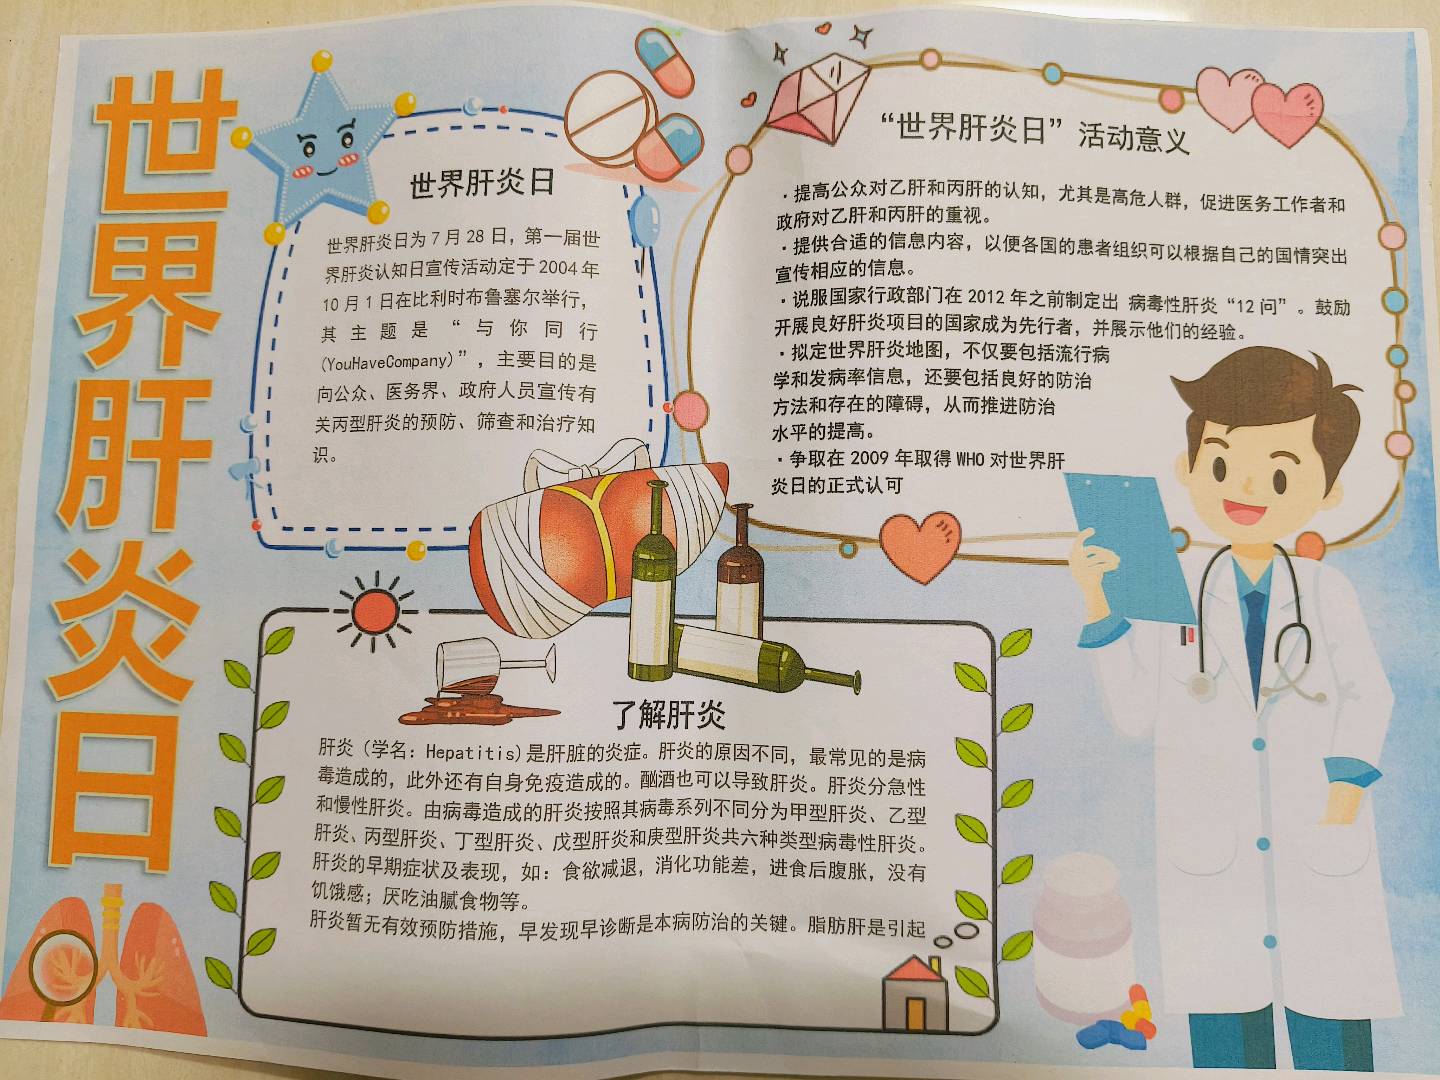 世界肝炎日
世界肝炎日
世界肝炎日为 7 月 28 日，第一届世
界肝炎认知日宣传活动定于 2004 年
10 月 1 日在比利时布鲁塞尔举行，
其主题是“与你同行
(YouHaveCompany)”，主要目的是
向公众、医务界、政府人员宣传有
关丙型肝炎的预防、筛查和治疗知
识。
“世界肝炎日”活动意义
·提高公众对乙肝和丙肝的认知，尤其是高危人群，促进医务工作者和
政府对乙肝和丙肝的重视。
·提供合适的信息内容，以便各国的患者组织可以根据自己的国情突出
宣传相应的信息。
·说服国家行政部门在 2012 年之前制定出 病毒性肝炎“12 问”。鼓励
开展良好肝炎项目的国家成为先行者，并展示他们的经验。
·拟定世界肝炎地图，不仅要包括流行病
学和发病率信息，还要包括良好的防治
方法和存在的障碍，从而推进防治
水平的提高。
·争取在 2009 年取得 WHO 对世界肝
炎日的正式认可
了解肝炎
肝炎（学名：Hepatitis)是肝脏的炎症。肝炎的原因不同，最常见的是病
毒造成的，此外还有自身免疫造成的。酗酒也可以导致肝炎。肝炎分急性
和慢性肝炎。由病毒造成的肝炎按照其病毒系列不同分为甲型肝炎、乙型
肝炎、丙型肝炎、丁型肝炎、戊型肝炎和庚型肝炎共六种类型病毒性肝炎。
肝炎的早期症状及表现，如：食欲减退，消化功能差，进食后腹胀，没有
饥饿感；厌吃油腻食物等。
肝炎暂无有效预防措施，早发现早诊断是本病防治的关键。脂肪肝是引起